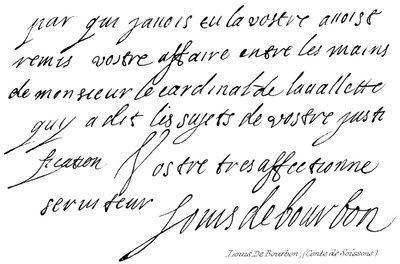 par qui javois eu la vostre avois &
remis vostre affaire entre les mains
de monsieur le cardinal de lavallette
quy a dit les sujets de vostre justi
fication Vostre tres affectionne
serviteur Louis de bourbon
Louis De Bourbon, (Conte de Soissons.)